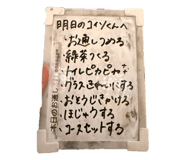 明日のコイソくんへ
・お通しつめる
・緑茶つくる
・トイレピカピカ
・グラスきれいにする
・おとうじさかける
・ほじゅうする
・コースセットする
本日のお通し